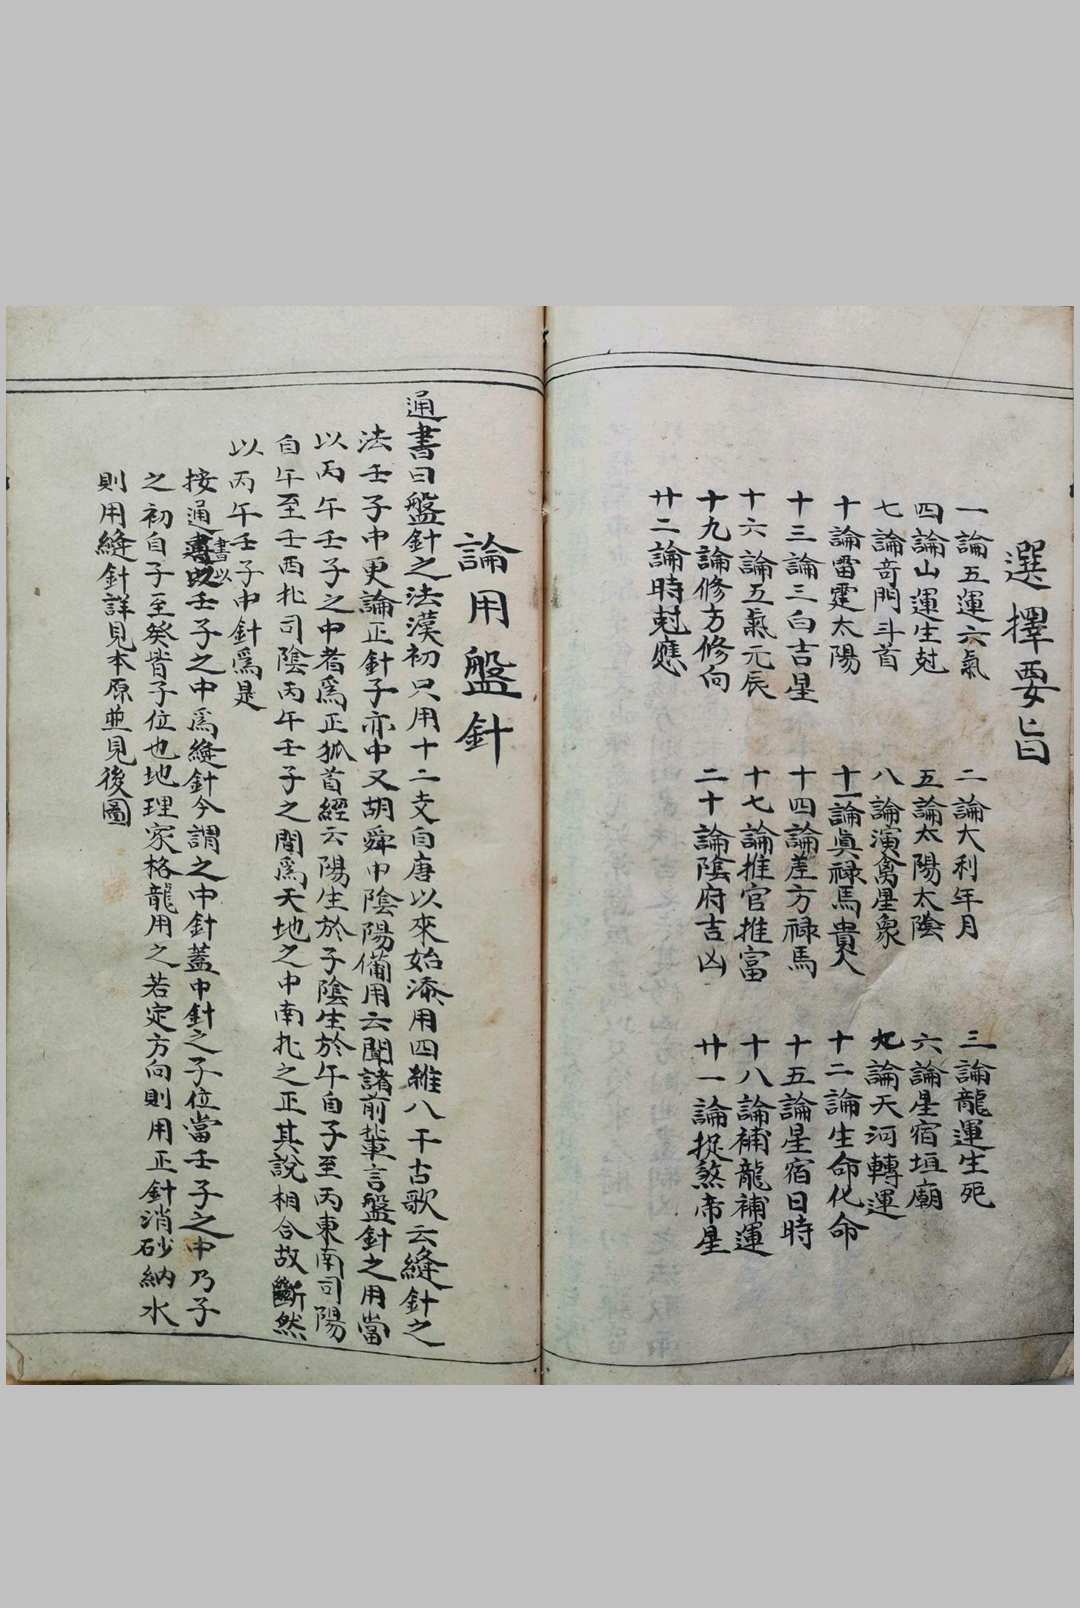 選擇要旨
一論五運六氣　二論大利年月　三論龍運生死
四論山運生尅　五論太陽太陰　六論星宿垣廟
七論奇門斗首　八論演禽星象　九論天河轉運
十論雷霆太陽　十一論真禄馬貴人　十二論生命化命
十三論三白吉星　十四論差方禄馬　十五論星宿日時
十六論五氣元辰　十七論推官推富　十八論補龍補運
十九論修方修向　二十論陰府吉凶　廿一論捉煞帝星
廿二論時尅應
論用盤針
通書曰盤針之法漢初只用十二支自唐以來始添用四維八干古歌云縫針之
法壬子中更論正針子亦中又胡舜申陰陽備用云聞諸前輩言盤針之用當
以丙午壬子之中者爲正狐首經云陽生於子陰生於午自子至丙東南司陽
自午至壬西北司陰丙午壬子之間爲天地之中南北之正其說相合故斷然
以丙午壬子中針爲是
按通書以壬子之中爲縫針今謂之中針蓋中針之子位當壬子之中乃子
之初自子至癸皆子位也地理家格龍用之若定方向則用正針消砂納水
則用縫針詳見本原並見後圖